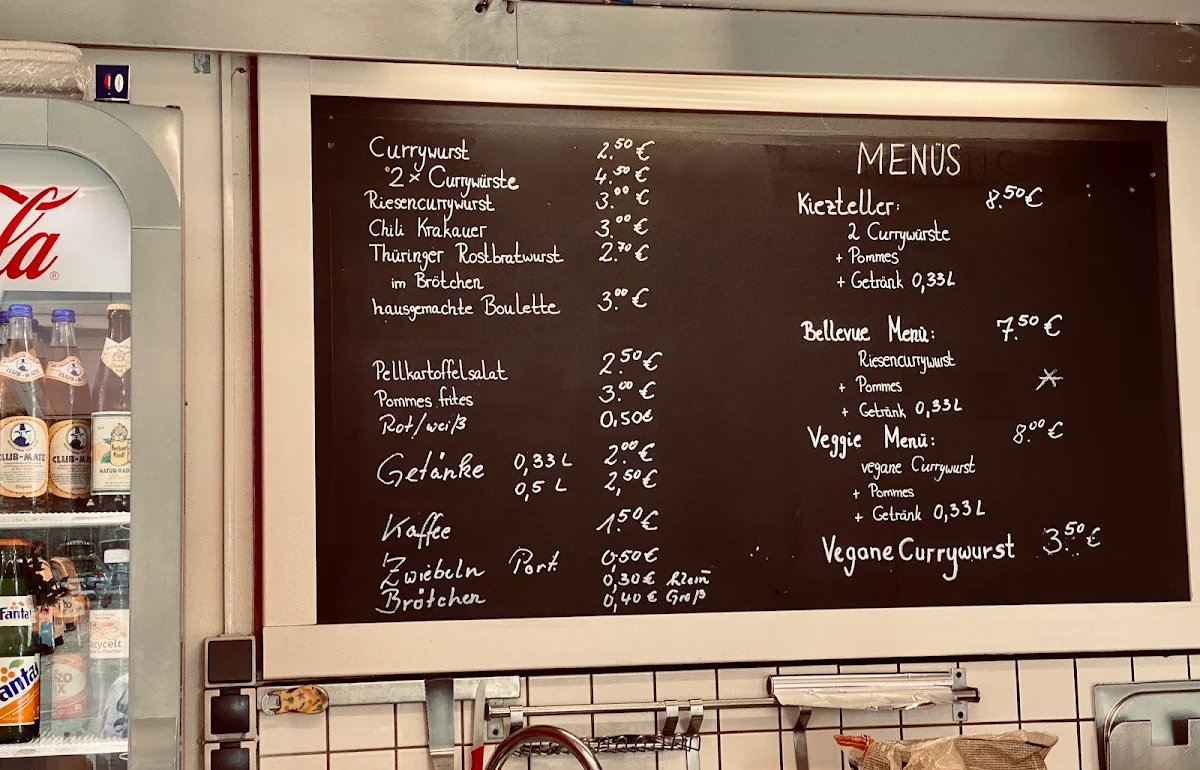 Currywurst 2.50 €
2 x Currywürste 4.50 €
Riesencurrywurst 3.00 €
Chili Krakauer 3.00 €
Thüringer Rostbratwurst 2.70 €
im Brötchen
hausgemachte Boulette 3.00 €
Pellkartoffelsalat 2.50 €
Pommes frites 3.00 €
Rot/weiß 0,50€
Getänke 0,33 L 2.00 €
0,5 L 2,50 €
Kaffee 1.50 €
Zwiebeln Port. 0,50 €
Brötchen 0,30 € klein
0,40 € Groß
MENÜS
Kiezteller: 8.50 €
2 Currywürste
+ Pommes
+ Getränk 0,33 L
Bellevue Menü: 7.50 €
Riesencurrywurst
+ Pommes
+ Getränk 0,33 L
Veggie Menü: 8.00 €
vegane Currywurst
+ Pommes
+ Getränk 0,33 L
Vegane Currywurst 3.50 €
la
CLUB-MATE
CLUB-MATE
NATURRAD
Fanta
Fanta